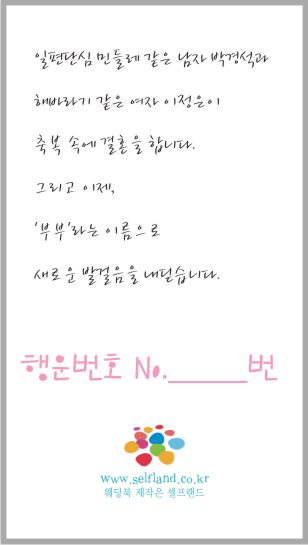 일편단심 민들레 같은 남자 박경석과
해바라기 같은 여자 이정은이
축복 속에 결혼을 합니다.
그리고 이제,
'부부'라는 이름으로
새로운 발걸음을 내딛습니다.
행운번호 No.______번
www.selfland.co.kr
웨딩북 제작은 셀프랜드